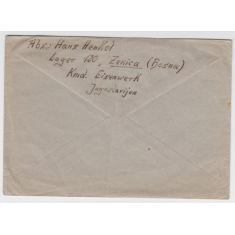 Abs.: Hans Henkel
Lager 120, Zenica (Bosna)
Kmd. Eisenwerk
Jugoslavijen